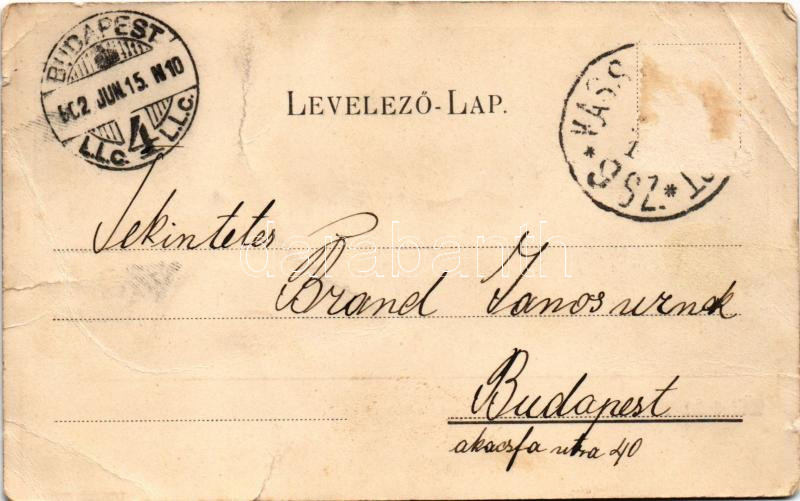 BUDAPEST
902 JUN. 15. N10
4
L.L.C. L.L.C.
LEVELEZŐ-LAP.
* VASS
* 7 SZ. *
Tekintetes
Brand Janos urnak
Budapest
akacsfa utca 40
darabanth